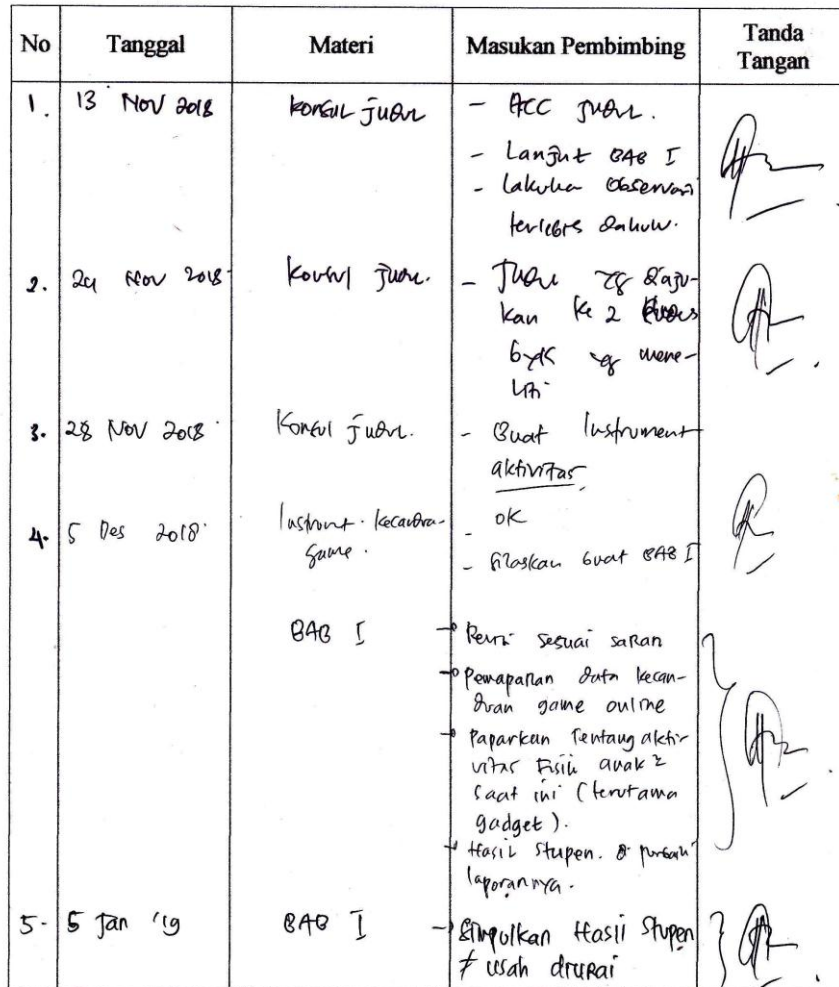 No Tanggal Materi Masukan Pembimbing Tanda Tangan
1. 13 Nov 2018 Konsul Judul - ACC Judul.
- Lanjut BAB I
- Lakuka Observasi
terlebih dahulu.
2. 29 Nov 2018 Konsul Judul. - Judul yg diaju-
kan ke 2
byk yg mene-
liti
3. 28 Nov 2018 Konsul Judul. - Buat Instrument
aktivitas
4. 5 Des 2018 Instrumt. kecandua- - OK
game. - Silaskan buat BAB I
BAB I Revisi sesuai saran
Pemaparan data kecan-
duan game online
Paparkan tentang akti-
vitas fisik anak2
saat ini (terutama
gadget).
Hasil Stupen.
laporannya.
5. 5 Jan '19 BAB I Simpulkan Hasil Stupen
≠ usah diurai